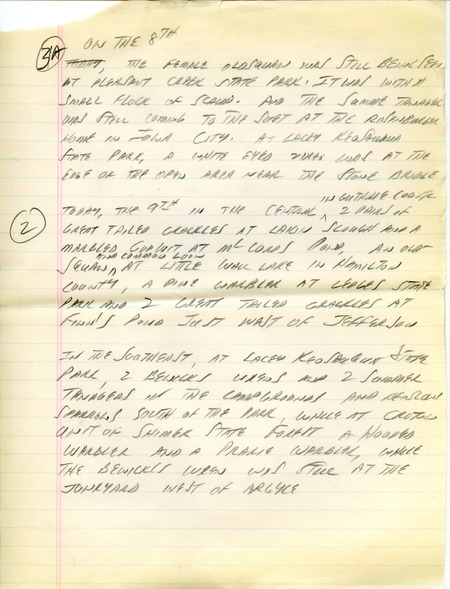 3A ON THE 8TH
TODAY, THE FEMALE OLDSQUAW WAS STILL BEING SEEN
AT PLEASANT CREEK STATE PARK. IT WAS WITH A
SMALL FLOCK OF SCAUP. AND THE SUMMER TANAGER
WAS STILL COMING TO THE SUET AT THE
HOME IN IOWA CITY. AT LACEY KEOSAUQUA
STATE PARK, A WHITE EYED VIREO WAS AT THE
EDGE OF THE OPEN AREA NEAR THE STONE BRIDGE
2 TODAY, THE 9TH IN THE CENTRAL, IN GUTHRIE COUNTY 2 PAIRS OF
GREAT TAILED GRACKLES AT LAKIN SLOUGH AND A
MARBLED GODWIT AT McCORDS POND, AN OLD-
SQUAW AND COMMON LOON AT LITTLE WALL LAKE IN HAMILTON
COUNTY, A PINE WARBLER AT LEDGES STATE
PARK AND 2 GREAT TAILED GRACKLES AT
FINN'S POND JUST WEST OF JEFFERSON
IN THE SOUTHEAST, AT LACEY KEOSAUQUA STATE
PARK, 2 BEWICKS WRENS AND 2 SUMMER
TANAGERS IN THE CAMPGROUNDS AND HENSLOWS
SPARROWS SOUTH OF THE PARK, WHILE AT CROTON
UNIT OF SHIMEK STATE FOREST A HOODED
WARBLER AND A PRAIRIE WARBLER, WHILE
THE BEWICKS WREN WAS STILL AT THE
JUNKYARD WEST OF ARGYLE